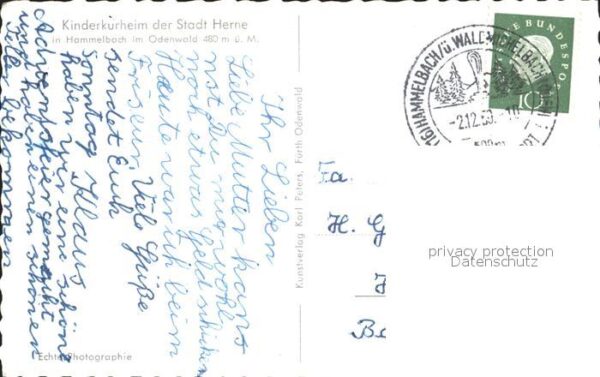 Kinderkurheim der Stadt Herne
in Hammelbach im Odenwald 480 m ü. M.
Ihr Lieben
Liebe Mutter kans
nst du mir wohl
noch etwas Geld schicken
Heute war ich beim
Friseur. Viele Grüße
sendet Euch
Klaus
Sonntag
haben wir eine schöne
Adventsfeier gemacht
wir haben einen schönen
bekommen
Echte Photographie
Kunstverlag Karl Peters, Fürth Odenwald
(16) HAMMELBACH/Ü. WALD-MICHELBACH
-2.12.59.-10
E BUNDESPO
10
Fa.
H. G
privacy protection
Datenschutz